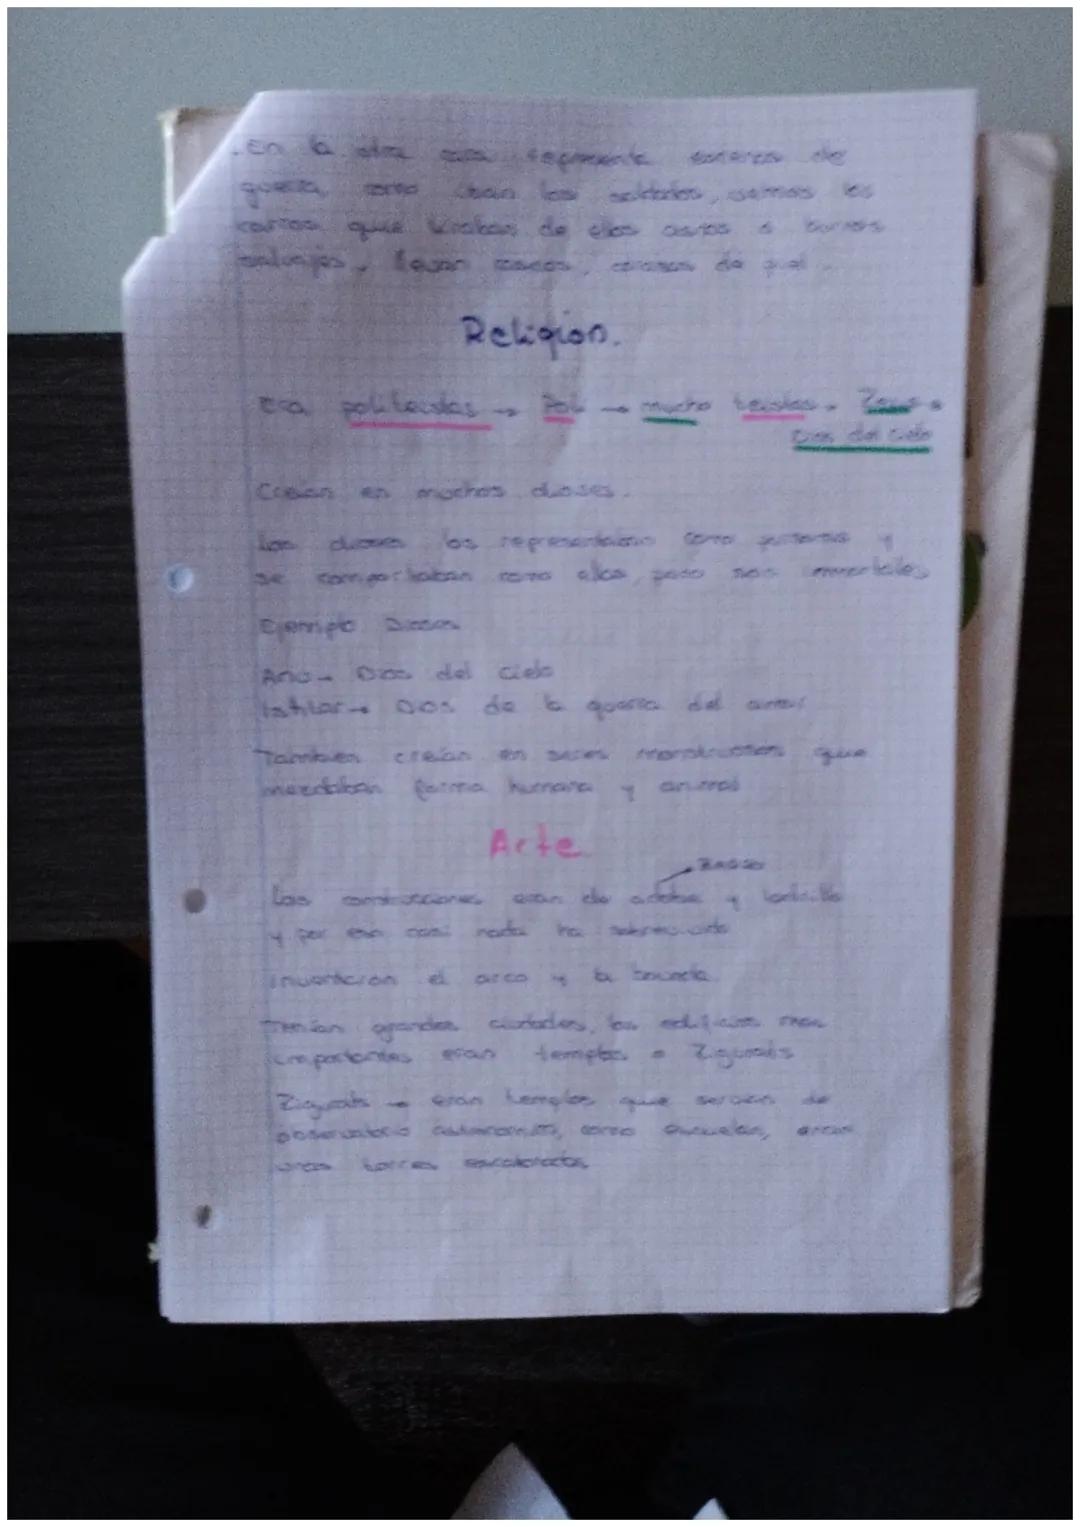 . En la otra cara representa escenas de
guerra, como iban los soldados, vemos los
carros que tiraban de ellos asnos o burros
salvajes, llevan cascos, corazas de piel.
Religion.
Era politeistas → Poli → mucho teistas. Zeus →
Dios del cielo
Creian en muchos dioses.
Los dioses los representaban como personas y
se comportaban como ellos, pero son inmortales
Ejemplo Dioses
Anu → Dios del cielo
Ishtar → Dios de la guerra del amor
Tambien creian en seres monstruosos que
mezclaban forma humana y animal
Arte
Las construcciones eran de adobe y ladrillo
y por eso casi nada ha sobrevivido
inventaron el arco y la boveda.
Tenian grandes ciudades, los edificios mas
importantes eran templos o Zigurats
Zigurats → eran templos que servian de
observatorio astronomico, como escuelas, eran
unas torres escalonadas